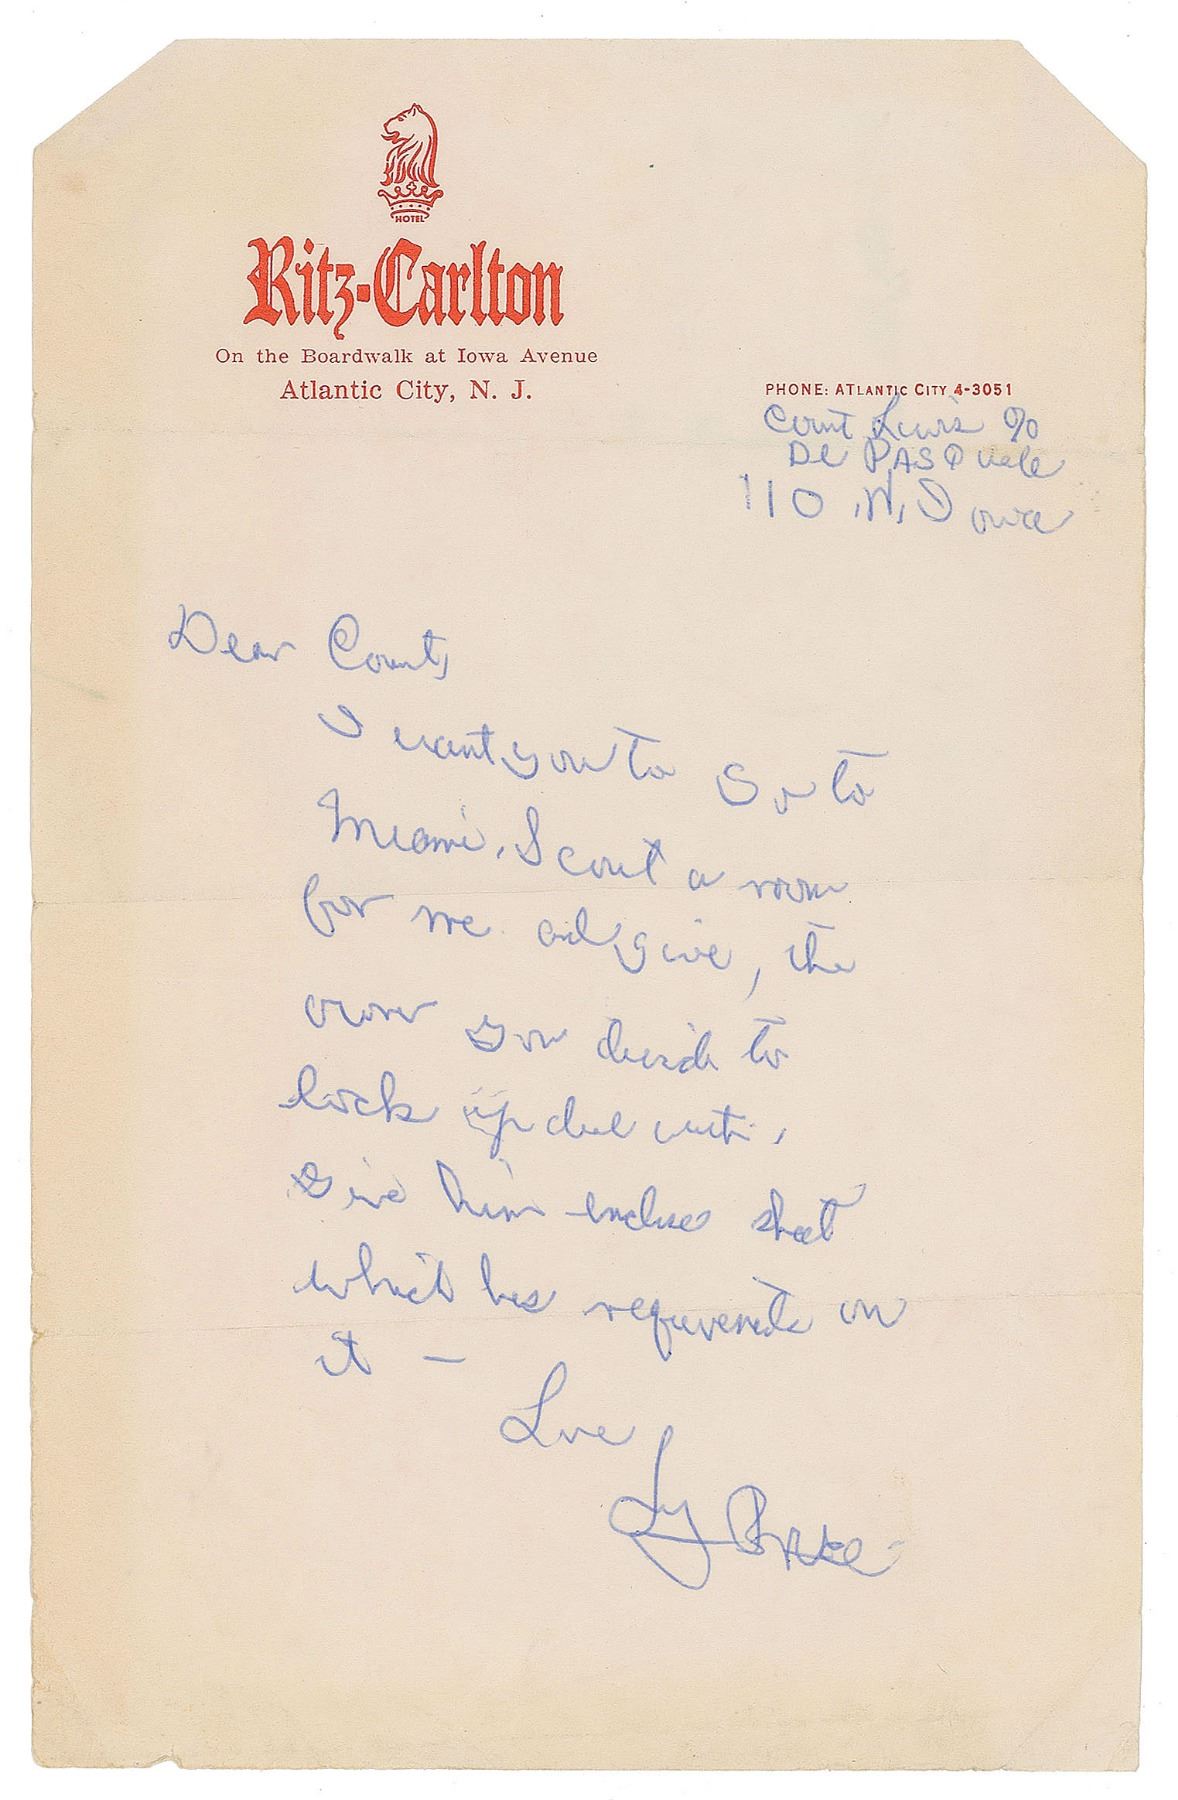 HOTEL
Ritz-Carlton
On the Boardwalk at Iowa Avenue
Atlantic City, N. J.
PHONE: ATLANTIC CITY 4-3051
Count Lewis %
De PASQuale
110 N. Iowa
Dear Count,
I want you to Go to
Miami, Scout a room
for me and give, the
owner you decide to
lock up deal with,
Give him enclose sheet
which has
on
it —
Love